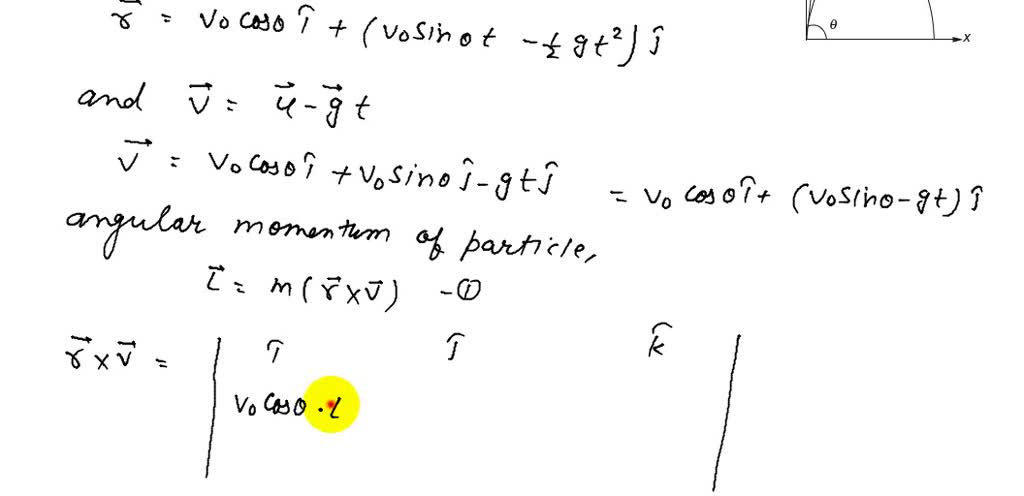 r⃗ = v₀ cosθ î + (v₀ sinθ t - ½ g t²) ĵ
θ
x
and v⃗ = u⃗ - g⃗ t
v⃗ = v₀ cosθ î + v₀ sinθ ĵ - g t ĵ = v₀ cosθ î + (v₀ sinθ - g t) ĵ
angular momentum of particle,
L⃗ = m (r⃗ × v⃗) - ①
r⃗ × v⃗ = | î ĵ k̂ |
v₀ cosθ · t